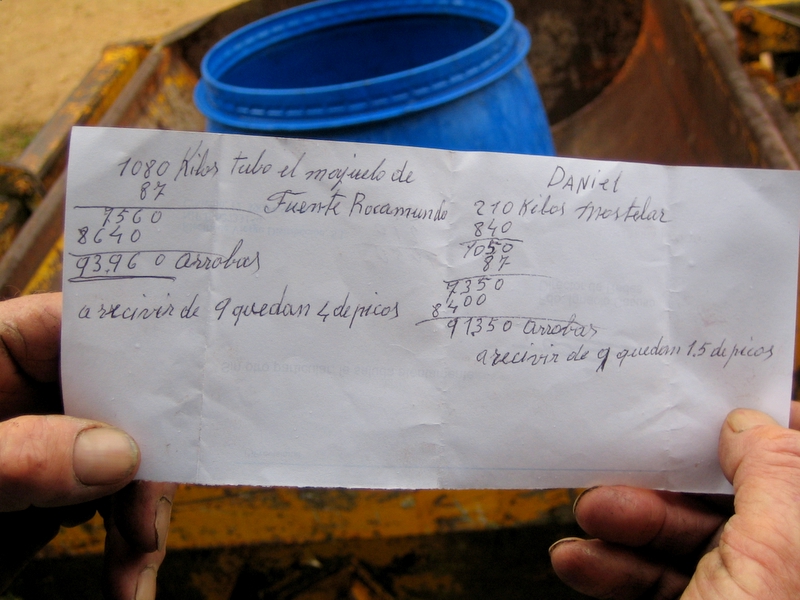 1080 Kilos tubo el majuelo de
87
Fuente Rocamundo
7560
8640
93.960 arrobas
a recivir de 9 quedan 4 de picos
DANIEL
210 Kilos mostelar
840
1050
87
7350
8400
91350 arrobas
a recivir de 9 quedan 1.5 de picos